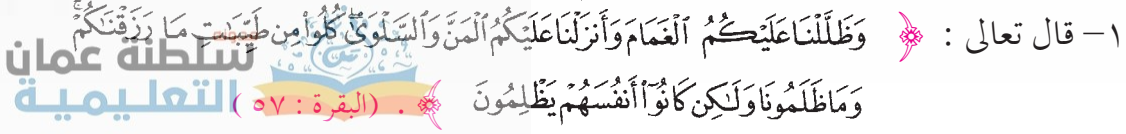 ١- قال تعالى : ﴿ وَظَلَّلْنَا عَلَيْكُمُ ٱلْغَمَامَ وَأَنزَلْنَا عَلَيْكُمُ ٱلْمَنَّ وَٱلسَّلْوَىٰ كُلُوا۟ مِن طَيِّبَٰتِ مَا رَزَقْنَٰكُمْ
وَمَا ظَلَمُونَا وَلَٰكِن كَانُوٓا۟ أَنفُسَهُمْ يَظْلِمُونَ ﴾ . (البقرة : ٥٧ )
سلطنة عمان
التعليمية